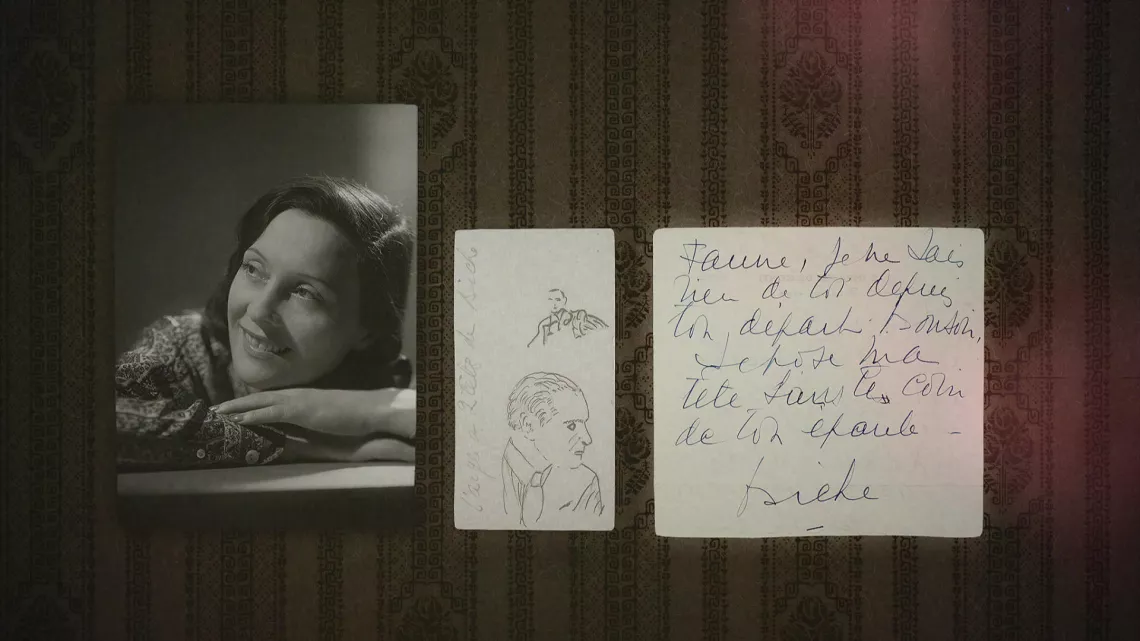 Faune, je ne sais
rien de toi depuis
ton départ. Bonsoir,
Je pose ma
tête dans le coin
de ton épaule –
Biche